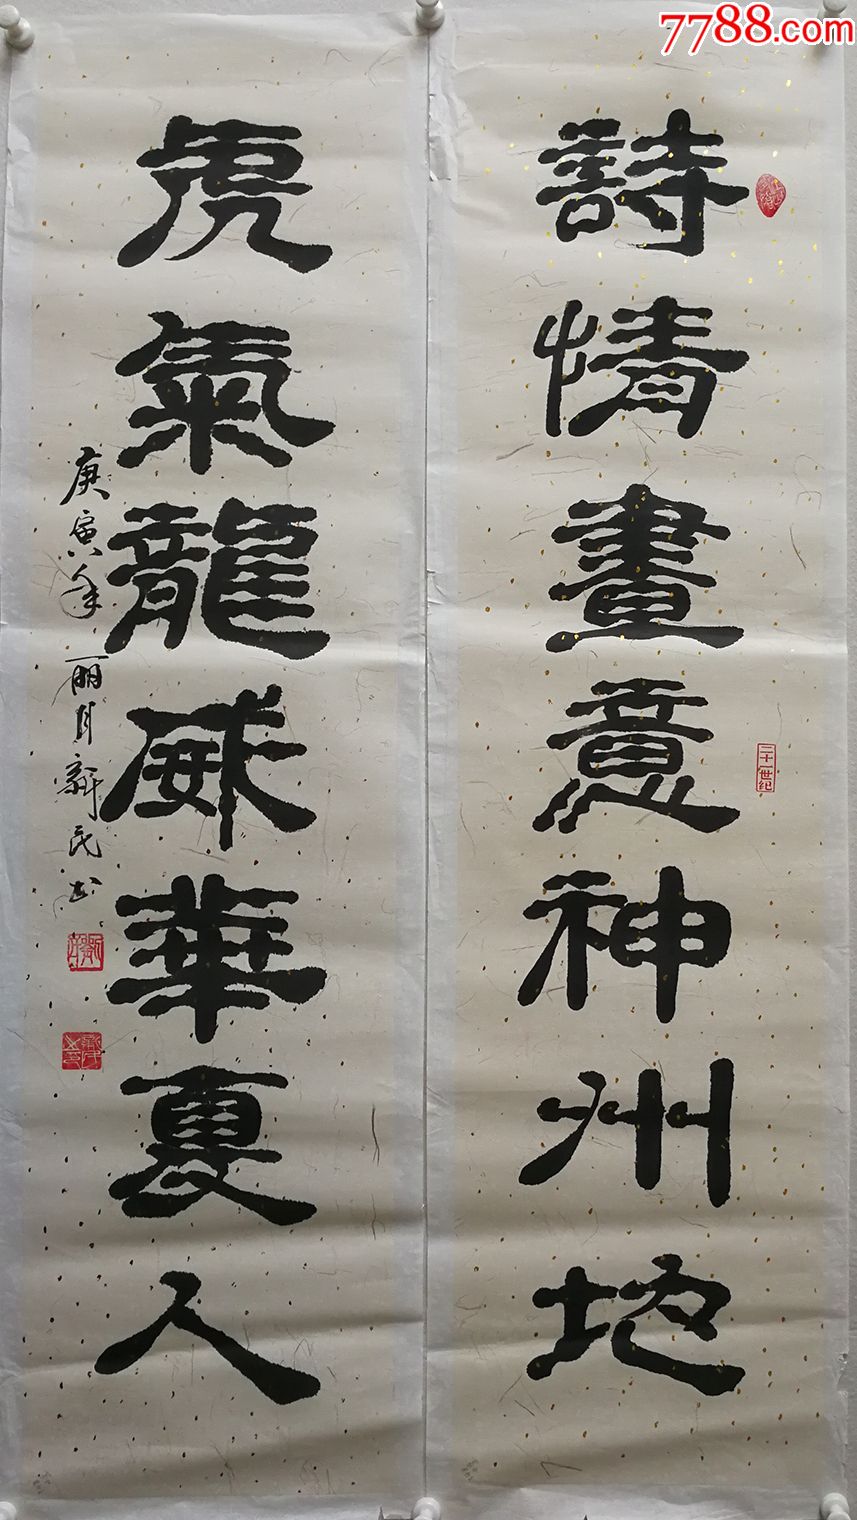 7788.com
詩情畫意神州地
虎氣龍威華夏人
庚寅年丽月新民书
二十一世纪